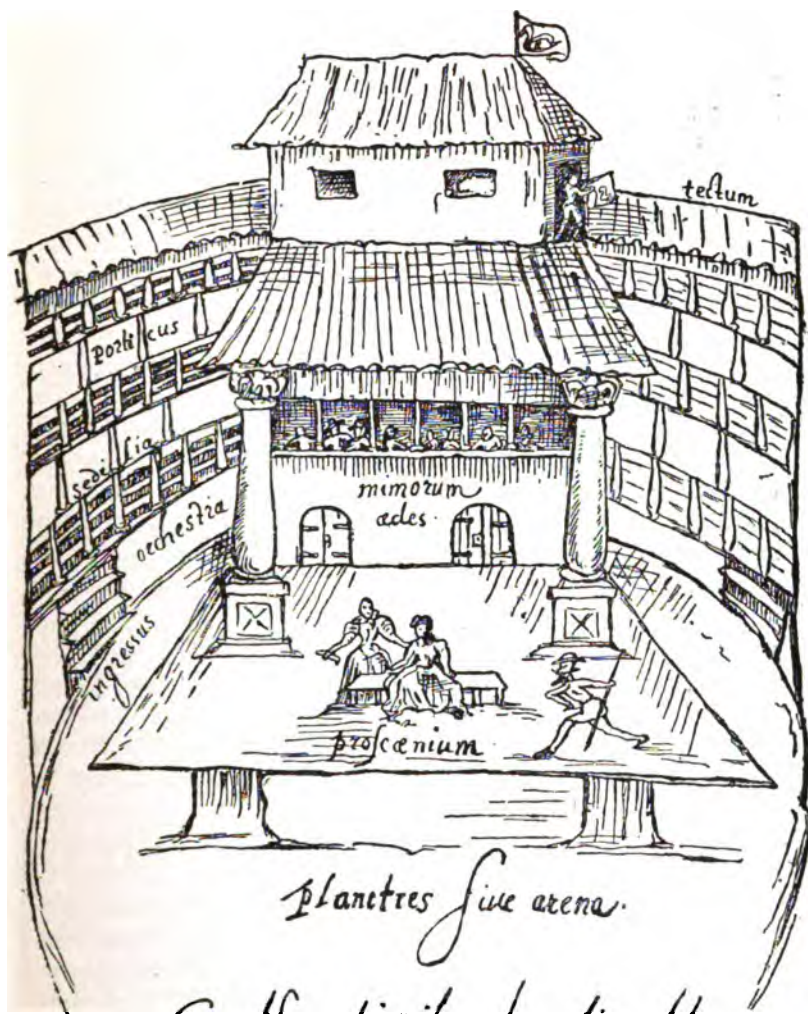 tectum
porticus
sedilia
orchestra
mimorum
ædes.
ingressus
proscænium
planities sive arena.